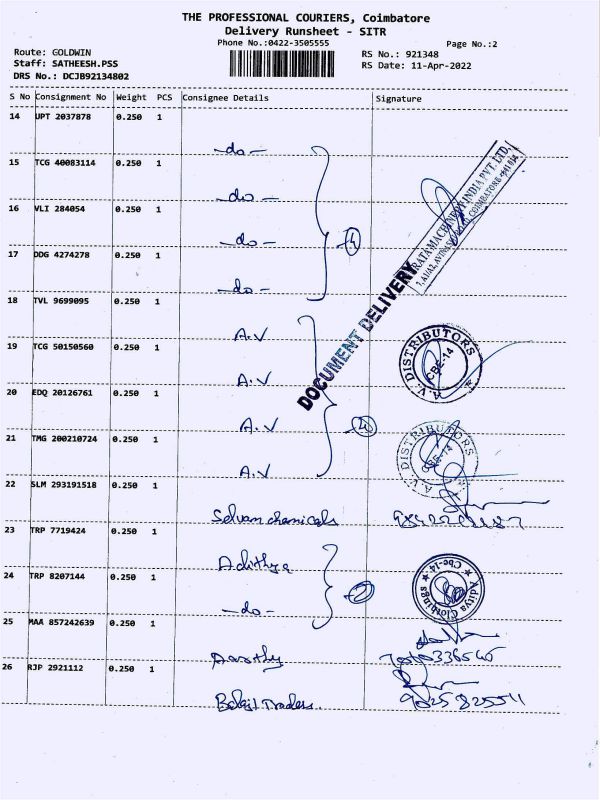 THE PROFESSIONAL COURIERS, Coimbatore
Delivery Runsheet - SITR
Phone No.:0422-3505555
Page No.:2
Route: GOLDWIN
Staff: SATHEESH.PSS
DRS No.: DCJB92134802
RS No.: 921348
RS Date: 11-Apr-2022
S No Consignment No Weight PCS Consignee Details Signature
14 UPT 2037878 0.250 1
-do-
15 TCG 40083114 0.250 1
-do-
16 VLI 284054 0.250 1
-do-
17 DDG 4274278 0.250 1
-do-
18 TVL 9699095 0.250 1
A.V
19 TCG 50150560 0.250 1
A.V
20 EDQ 20126761 0.250 1
A.V
21 TMG 200210724 0.250 1
A.V
22 SLM 293191518 0.250 1
Selvam chemicals
23 TRP 7719424 0.250 1
Adithya
24 TRP 8207144 0.250 1
-do-
25 MAA 857242639 0.250 1
26 RJP 2921112 0.250 1
Balaji Traders
DOCUMENT DELIVERY
MACHINERY INDIA PVT. LTD.
A.V. DISTRIBUTORS
CBE-14
A.V. DISTRIBUTORS
CBE-14
Aditya Clothings
Cbe-14